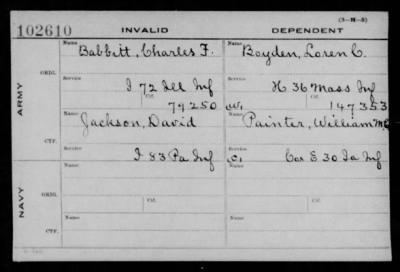 (3-M-5)
102610 INVALID DEPENDENT
Name Name
Babbitt, Charles F. Boyden, Loren C.
ORIG.
Service Service
I 72 Ill Inf H 36 Mass Inf
Ctf. Ctf.
79250 147353
ARMY
Name Name
Jackson, David Painter, William
CTF.
Service Service
I 83 Pa Inf Co E 30 Ia Inf
Name Name
ORIG.
Ctf. Ctf.
NAVY
Name Name
CTF.